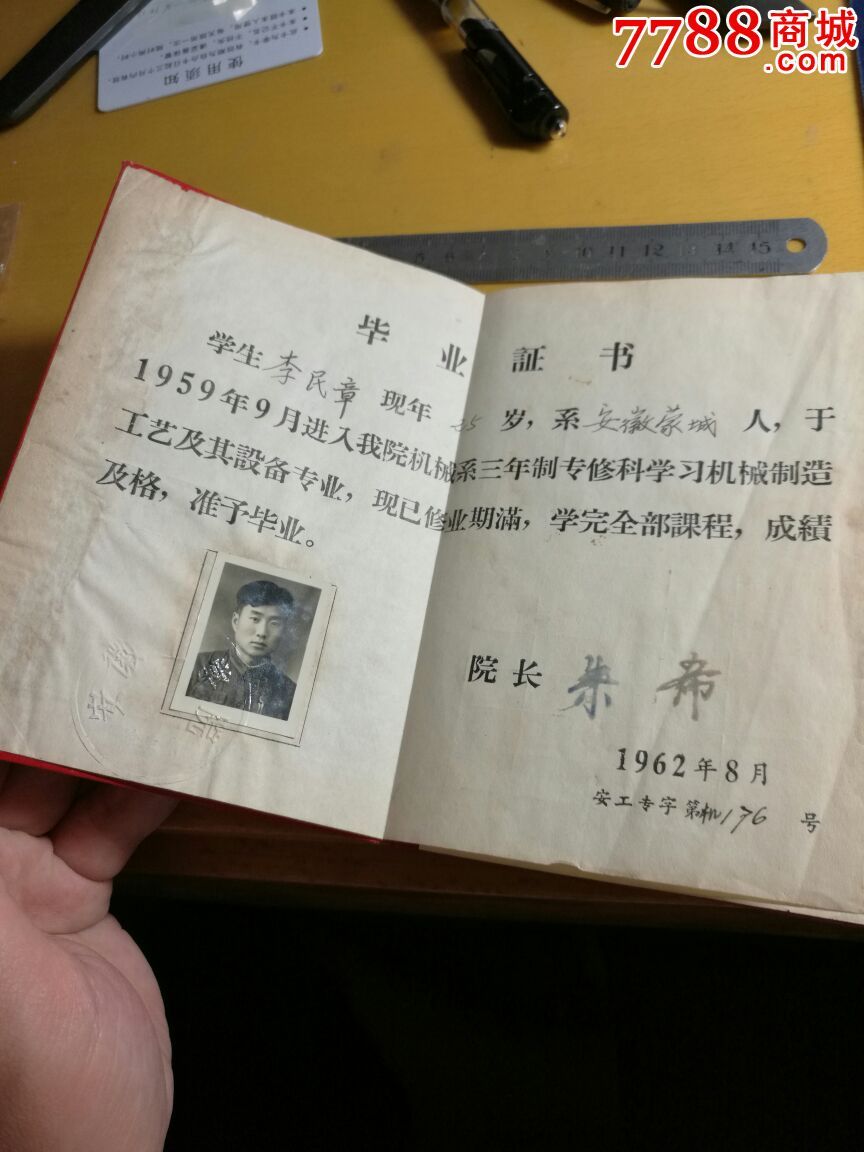 7788商城
.com
使用须知
5 6 7 8 9 10 11 12 13 14 15
毕业証书
学生李民章现年25岁，系安徽蒙城人，于
1959年9月进入我院机械系三年制专修科学习机械制造
工艺及其設备专业，现已修业期滿，学完全部課程，成績
及格，准予毕业。
安徽
院长 朱希
1962年8月
安工专字第机176号